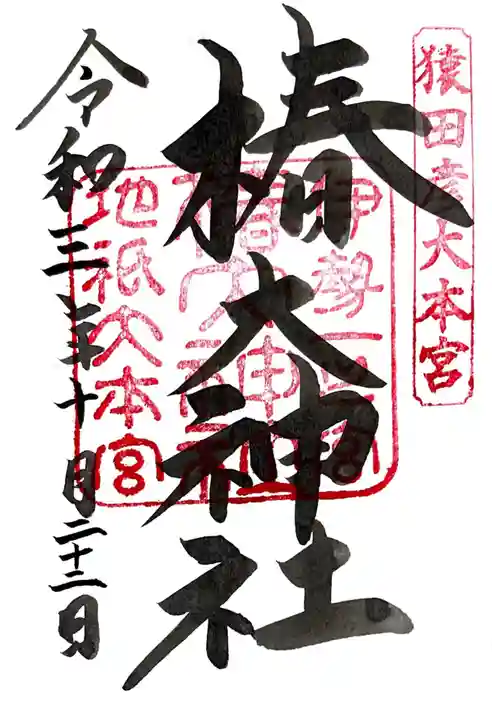 猿田彦大本宮
椿大神社
伊勢一宮
椿大神社
地祇大本宮
令和三年十月二十二日